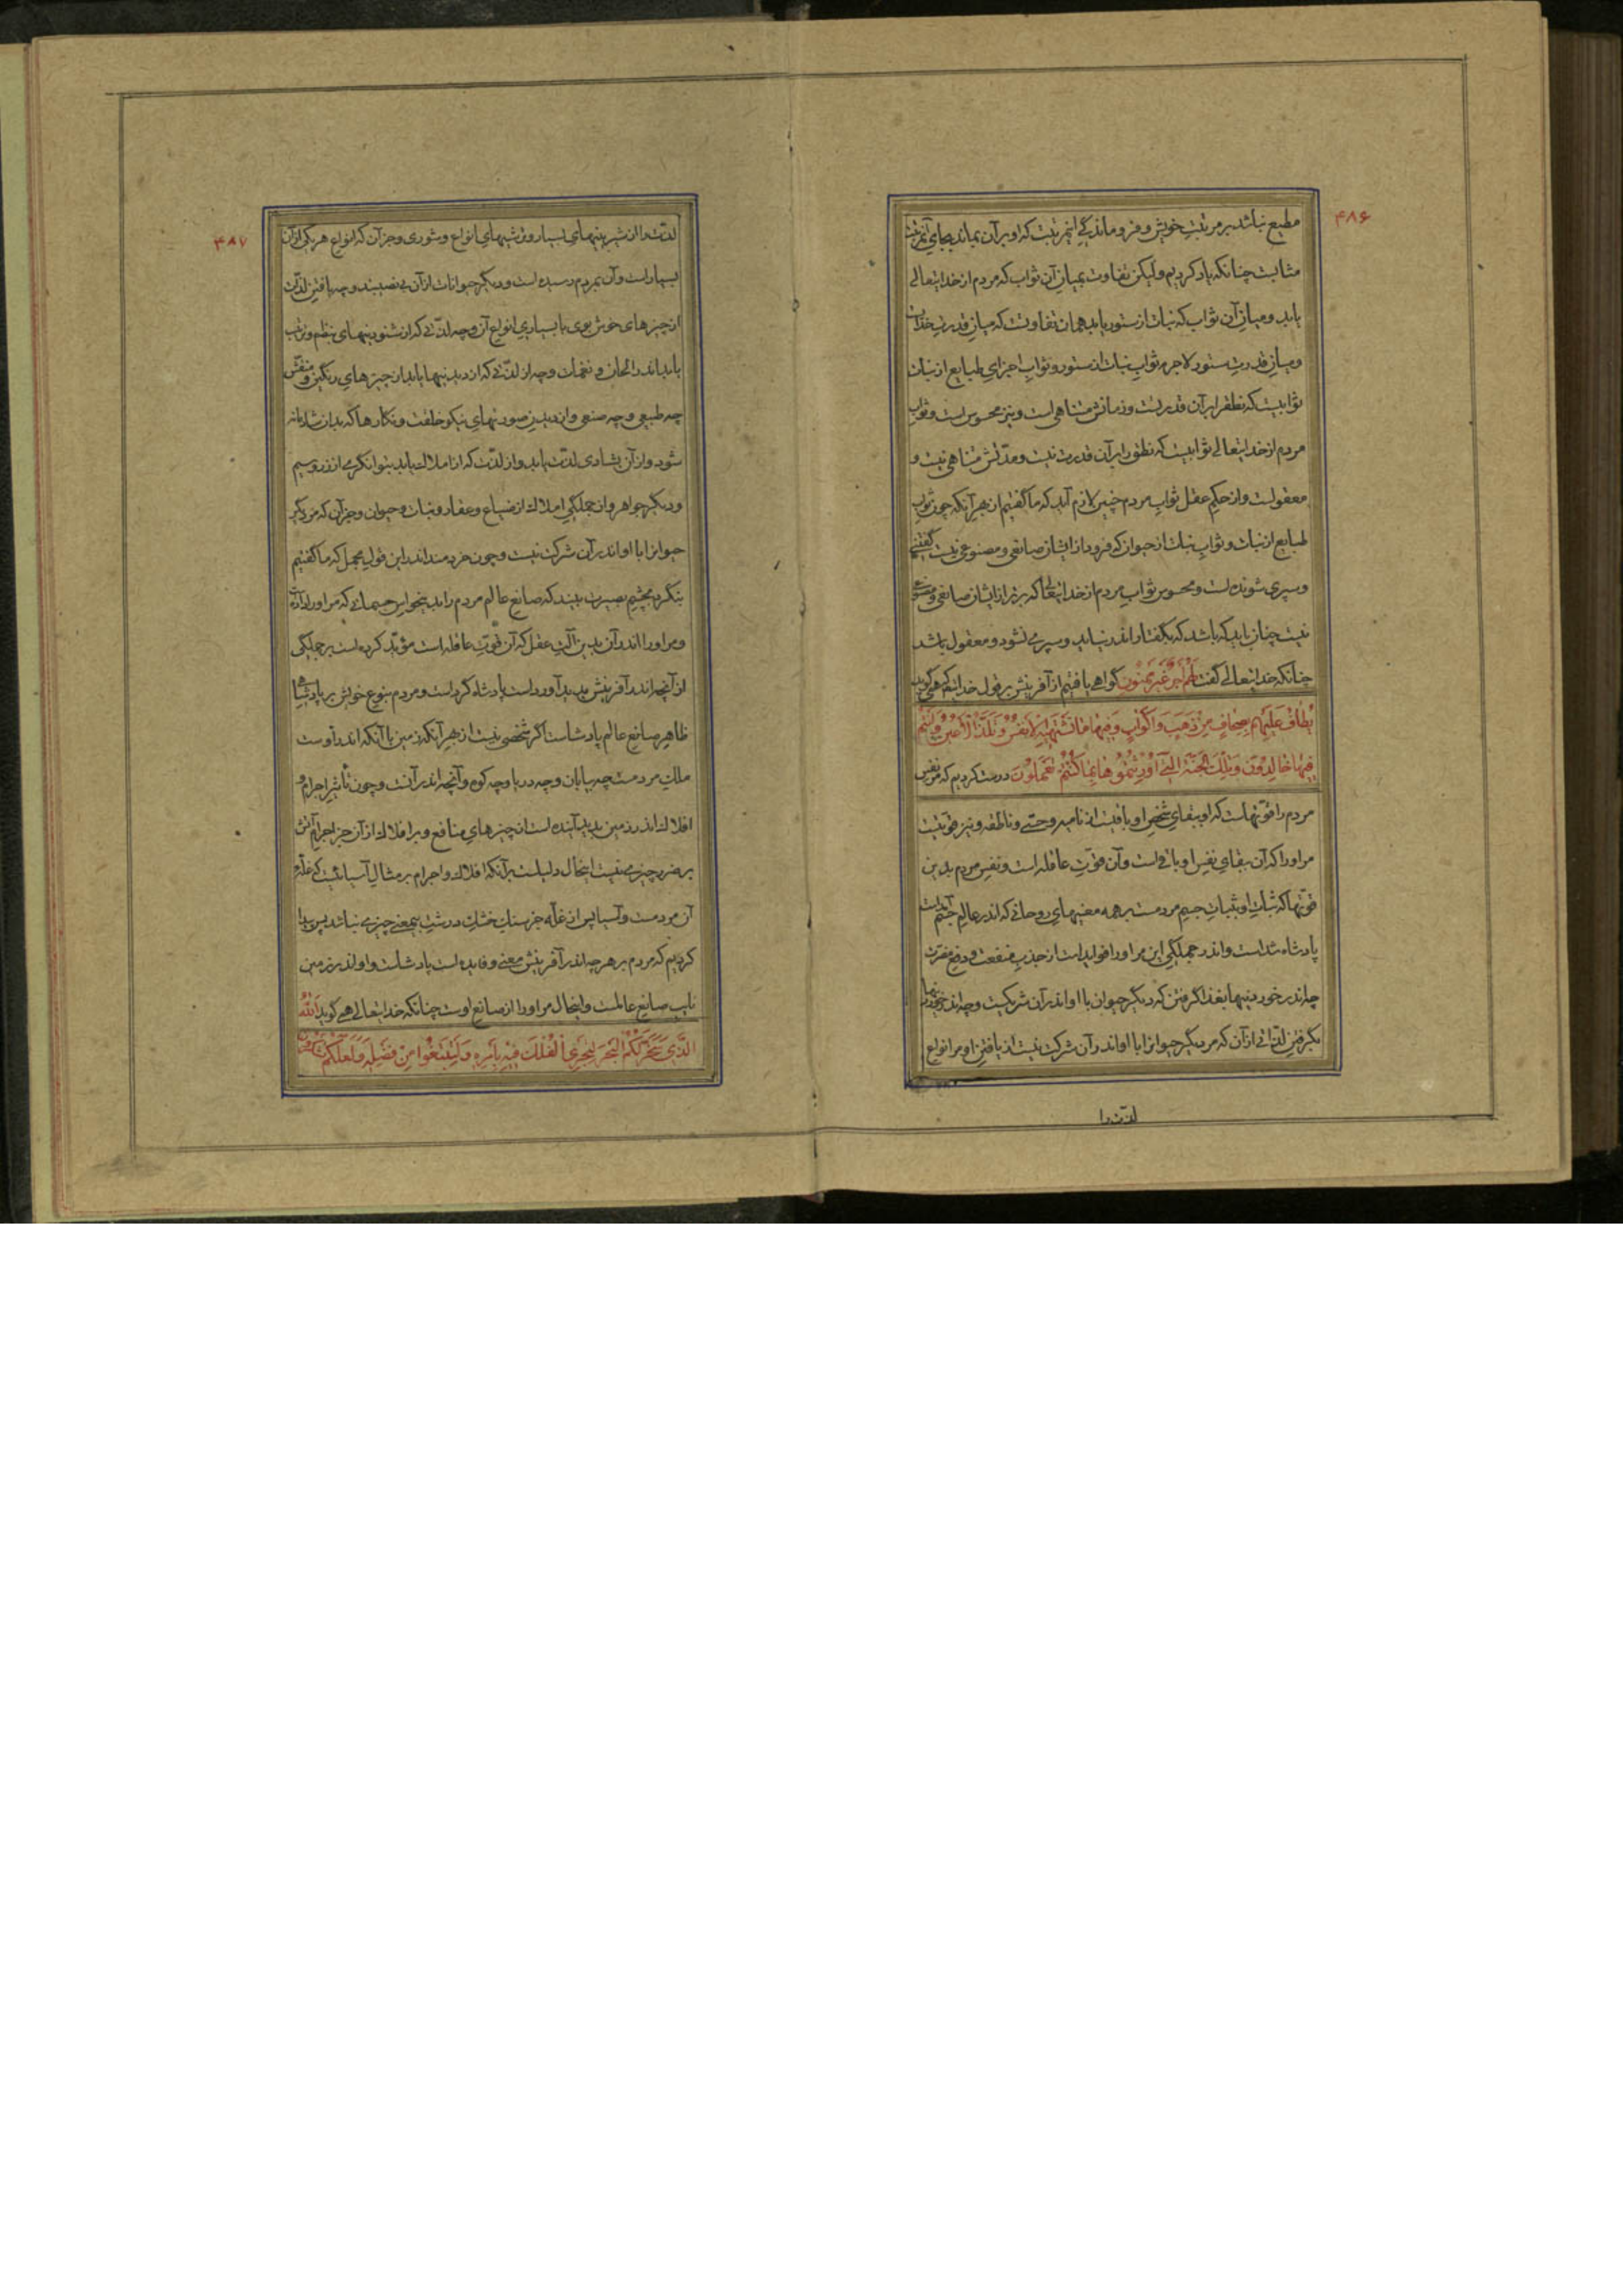 ۴۸۶
مطیع نباشد بر مرتبت خویش و فرو ماندگی این مرتبت که او بر آن بماند بجای آن مرتبت
مثابست چنانکه یاد کردیم ولیکن تفاوت بمیان آن ثواب که مردم از خدایتعالی
یابد و میان آن ثواب که نبات از ستور یابد همان تفاوتست که میان قدرت خدایست
و میان قدرت ستور لاجرم ثواب نبات از ستور و ثواب اجزای طبایع از نبات
ثوابیست که نطق را بر آن قدرتست و زمانش متناهی است و نیز محسوس است و ثواب
مردم از خدایتعالی ثوابیست که نطق را بر آن قدرت نیست و مدتش متناهی نیست و
معقولست و از حکم عقل ثواب مردم چنین لازم آید که ما گفتیم از بهر آنکه چون ثواب
طبایع از نبات و ثواب نبات از حیوان که فرود از ایشان صانعی و مصنوعی نیست گفتنی
و سپری شونده است و محسوس ثواب مردم از خدایتعالی که برتر از ایشان صانعی و مصنوعی
نیست چنان باید که باشد که بگفتار اندر نیاید و سپری نشود و معقول باشد
چنانکه خدایتعالی گفت لَهُمْ أَجْرٌ غَيْرُ مَمْنُونٍ گواهی یافتیم از آفرینش بر قول خدایتعالی که همی گوید
يُطَافُ عَلَيْهِم بِصِحَافٍ مِنْ ذَهَبٍ وَأَكْوَابٍ وَفِيهَا مَا تَشْتَهِيهِ الْأَنْفُسُ وَتَلَذُّ الْأَعْيُنُ وَأَنْتُمْ
فِيهَا خَالِدُونَ وَتِلْكَ الْجَنَّةُ الَّتِي أُورِثْتُمُوهَا بِمَا كُنْتُمْ تَعْمَلُونَ درست کردیم که مر نفس
مردم را قوتهاست که او ببقای شخص او باقیست از نامیه و حسی و ناطقه و نیز قوتیست
مر او را که آن ببقای نفس او باقی است و آن قوت عاقله است و نفس مردم بدین
قوتها که ثبات او بثبات جسم مردمست بر همه معنیهای روحانی که اندر عالم جسم آمدست
پادشاه شداست و اندر جملگی این مر او را فوایدست از جذب منفعت و دفع مضرت
چه اندر خوردنیها بغذا گرفتن که دیگر حیوان با او اندر آن شریکست و چه اندر خوردنیها
بگرفتن لذاتی از آن که مر دیگر حیوانرا با او اندر آن شرکت نیست از یافتن او مر انواع
لذت را
۴۸۷
لذت را از شیرینیهای بسیار و ترشیهای انواع و شوری و جز آن که انواع هر یکی از آن
بسیار است و آن بمردم رسیده است و دیگر حیوانات از آن بی نصیبند و چه یافتن لذت
از چیزهای خوش بوی با بسیاری انواع آن و چه لذتی که از شنودنیهای بنظم و ترتیب
یابد اندر الحان و نغمات و چه از لذتی که از دیدنیها یابد از چیزهای رنگین و منقش
چه طبیعی و چه صنعی و از دیدن صورتهای نیکو خلقت و نگارها که بدان شادمانه
شود و از آن بشادی لذت یابد و از لذت که از املاک یابد بتوانگری از زر و سیم
و دیگر جواهر و از جملگی املاک از ضیاع و عقار و نبات و حیوان و جز آن که مر دیگر
حیوانرا با او اندر آن شرکت نیست و چون خردمند اندر این قول مجمل که ما گفتیم
بنگرد بچشم بصیرت ببیند که صانع عالم مردم را بدین پنج حواس جسمانی که مر او را داده است
و مر او را اندر آن بدین آلت عقل که آن قوت عاقله است مؤید کرده است بر جملگی
از آنچه اندر آفرینش پدید آورده است پادشاه کرد است و مردم بنوع خویش بر پادشاهی
ظاهر صانع عالم پادشاست اگر شخصی نیست از بهر آنکه زمین با آنکه اندر اوست
ملک مردمست چه بیابان و چه دریا و چه کوه و آنچه اندر آنست و چون تأثیر اجرام و
افلاک اندر زمین پدید آینده است از چیزهای منافع و بر افلاک از آن جز اجرام آتش
بر ضرر چیزی نیست اینحال دلیلست بر آنکه افلاک و اجرام بر مثال آسیائیست که غله
آن مردمست و آسیا پس از غله جز سنگ خشک درشت بیمعنی چیزی نباشد پس پیدا
کردیم که مردم بر هر چه اندر آفرینش معنی و فایده است پادشاست و او اندر زمین
نایب صانع عالمست و اینحال مر او را از صانع اوست چنانکه خدایتعالی همی گوید اَللهُ
الَّذِي سَخَّرَ لَكُمُ الْبَحْرَ لِتَجْرِيَ الْفُلْكُ فِيهِ بِأَمْرِهِ وَلِتَبْتَغُوا مِنْ فَضْلِهِ وَلَعَلَّكُمْ تَشْكُرُونَ